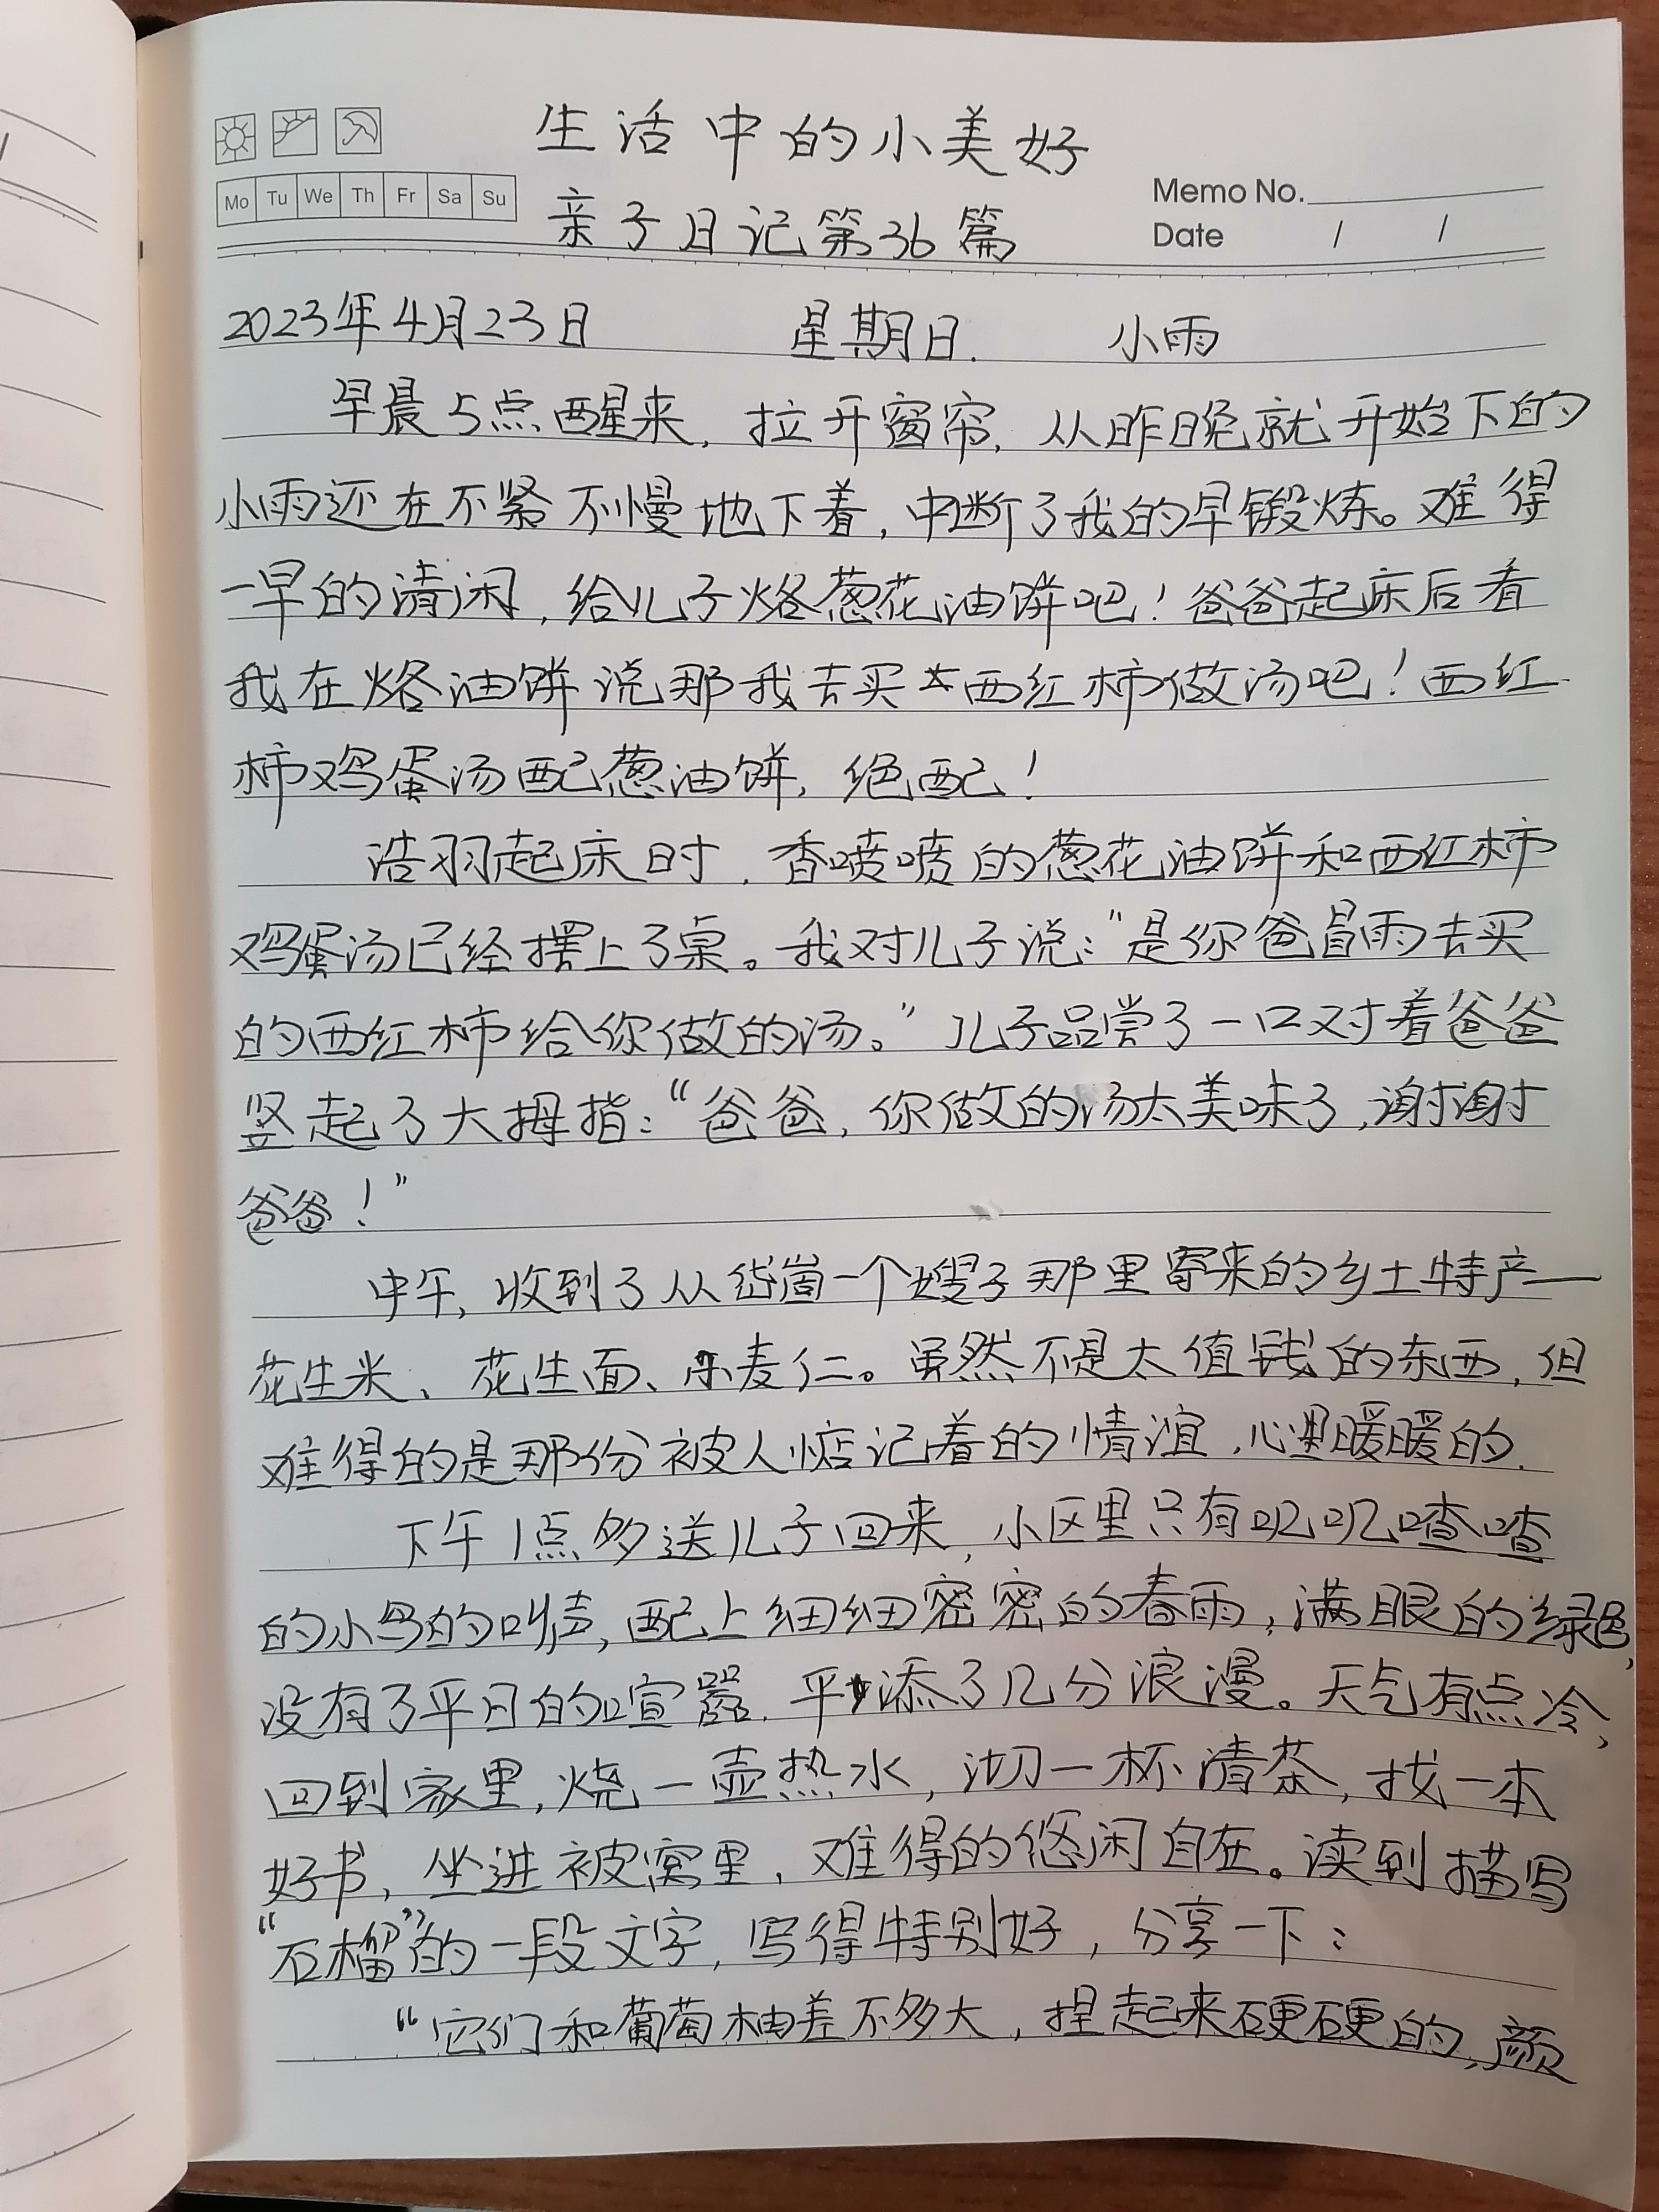 生活中的小美好
Mo Tu We Th Fr Sa Su
亲子日记第36篇
Memo No.
Date / /
2023年4月23日 星期日. 小雨
早晨5点醒来，拉开窗帘，从昨晚就开始下的
小雨还在不紧不慢地下着，中断了我的早锻炼。难得
一早的清闲，给儿子烙葱花油饼吧！爸爸起床后看
我在烙油饼说那我去买西红柿做汤吧！西红
柿鸡蛋汤配葱油饼，绝配！
浩羽起床时，香喷喷的葱花油饼和西红柿
鸡蛋汤已经摆上了桌。我对儿子说："是你爸冒雨去买
的西红柿给你做的汤。"儿子品尝了一口对着爸爸
竖起了大拇指："爸爸，你做的汤太美味了，谢谢
爸爸！"
中午，收到了从岱崮一个嫂子那里寄来的乡土特产—
花生米、花生面、麦仁。虽然不是太值钱的东西，但
难得的是那份被人惦记着的情谊，心里暖暖的.
下午1点多送儿子回来，小区里只有叽叽喳喳
的小鸟的叫声，配上细细密密的春雨，满眼的绿色，
没有了平日的喧嚣，平添了几分浪漫。天气有点冷，
回到家里，烧一壶热水，沏一杯清茶，找一本
好书，坐进被窝里，难得的悠闲自在。读到描写
"石榴"的一段文字，写得特别好，分享一下：
"它们和葡萄柚差不多大，捏起来硬硬的，颜